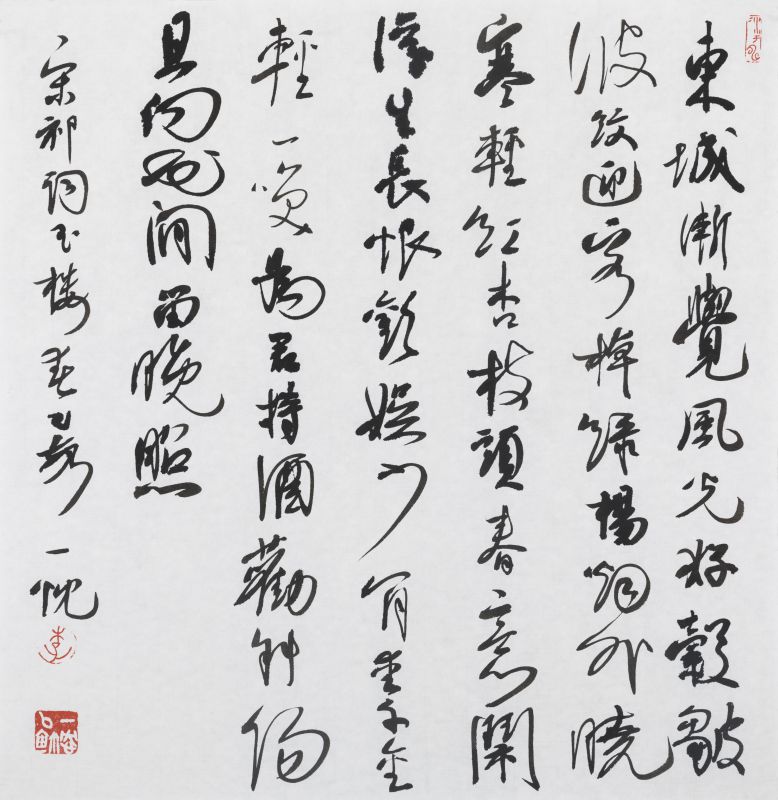 東城漸覺風光好縠皺
波紋迎客棹綠楊烟外曉
寒輕紅杏枝頭春意鬧
浮生長恨歡娛少肯愛千金
輕一咲為君持酒勸斜陽
且向花間留晚照
宋祁詞玉樓春 一忱
李